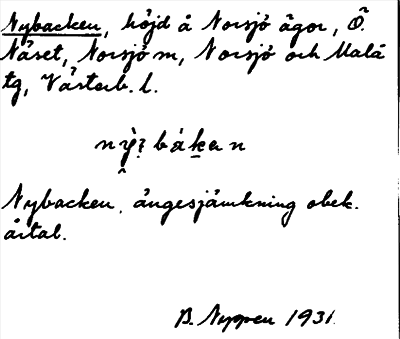 Nybacken, höjd å Norsjö ägor, Ö.
Näset, Norsjö sn, Norsjö och Malå
tg, Västerb. l.
Nybacken. ängesjämkning obek.
årtal.
B. Nyppen 1931